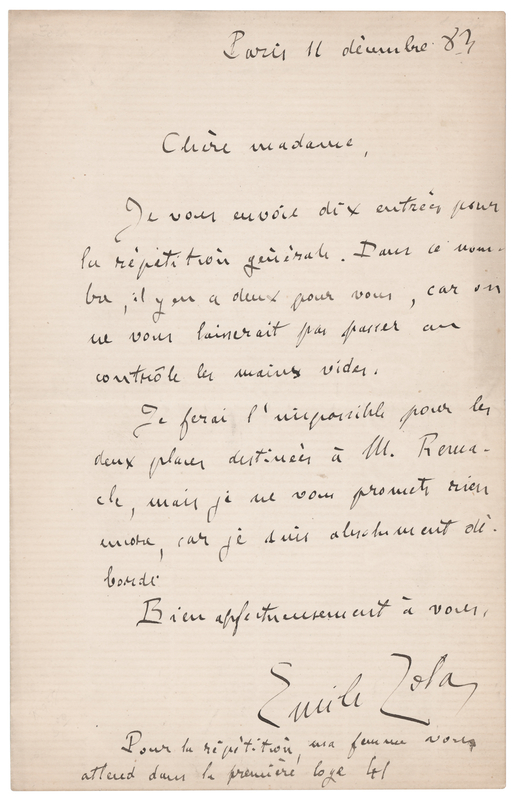 Paris 11 décembre 83
Chère madame,
Je vous envoie dix entrées pour
la répétition générale. Dans ce nom-
bre, il y en a deux pour vous, car on
ne vous laisserait pas passer au
contrôle les mains vides.
Je ferai l'impossible pour les
deux places destinées à M. Rema-
cle, mais je ne vous promets rien
encore, car je suis absolument dé-
bordé.
Bien affectueusement à vous,
Emile Zola
Pour la répétition, ma femme vous
attend dans la première loge